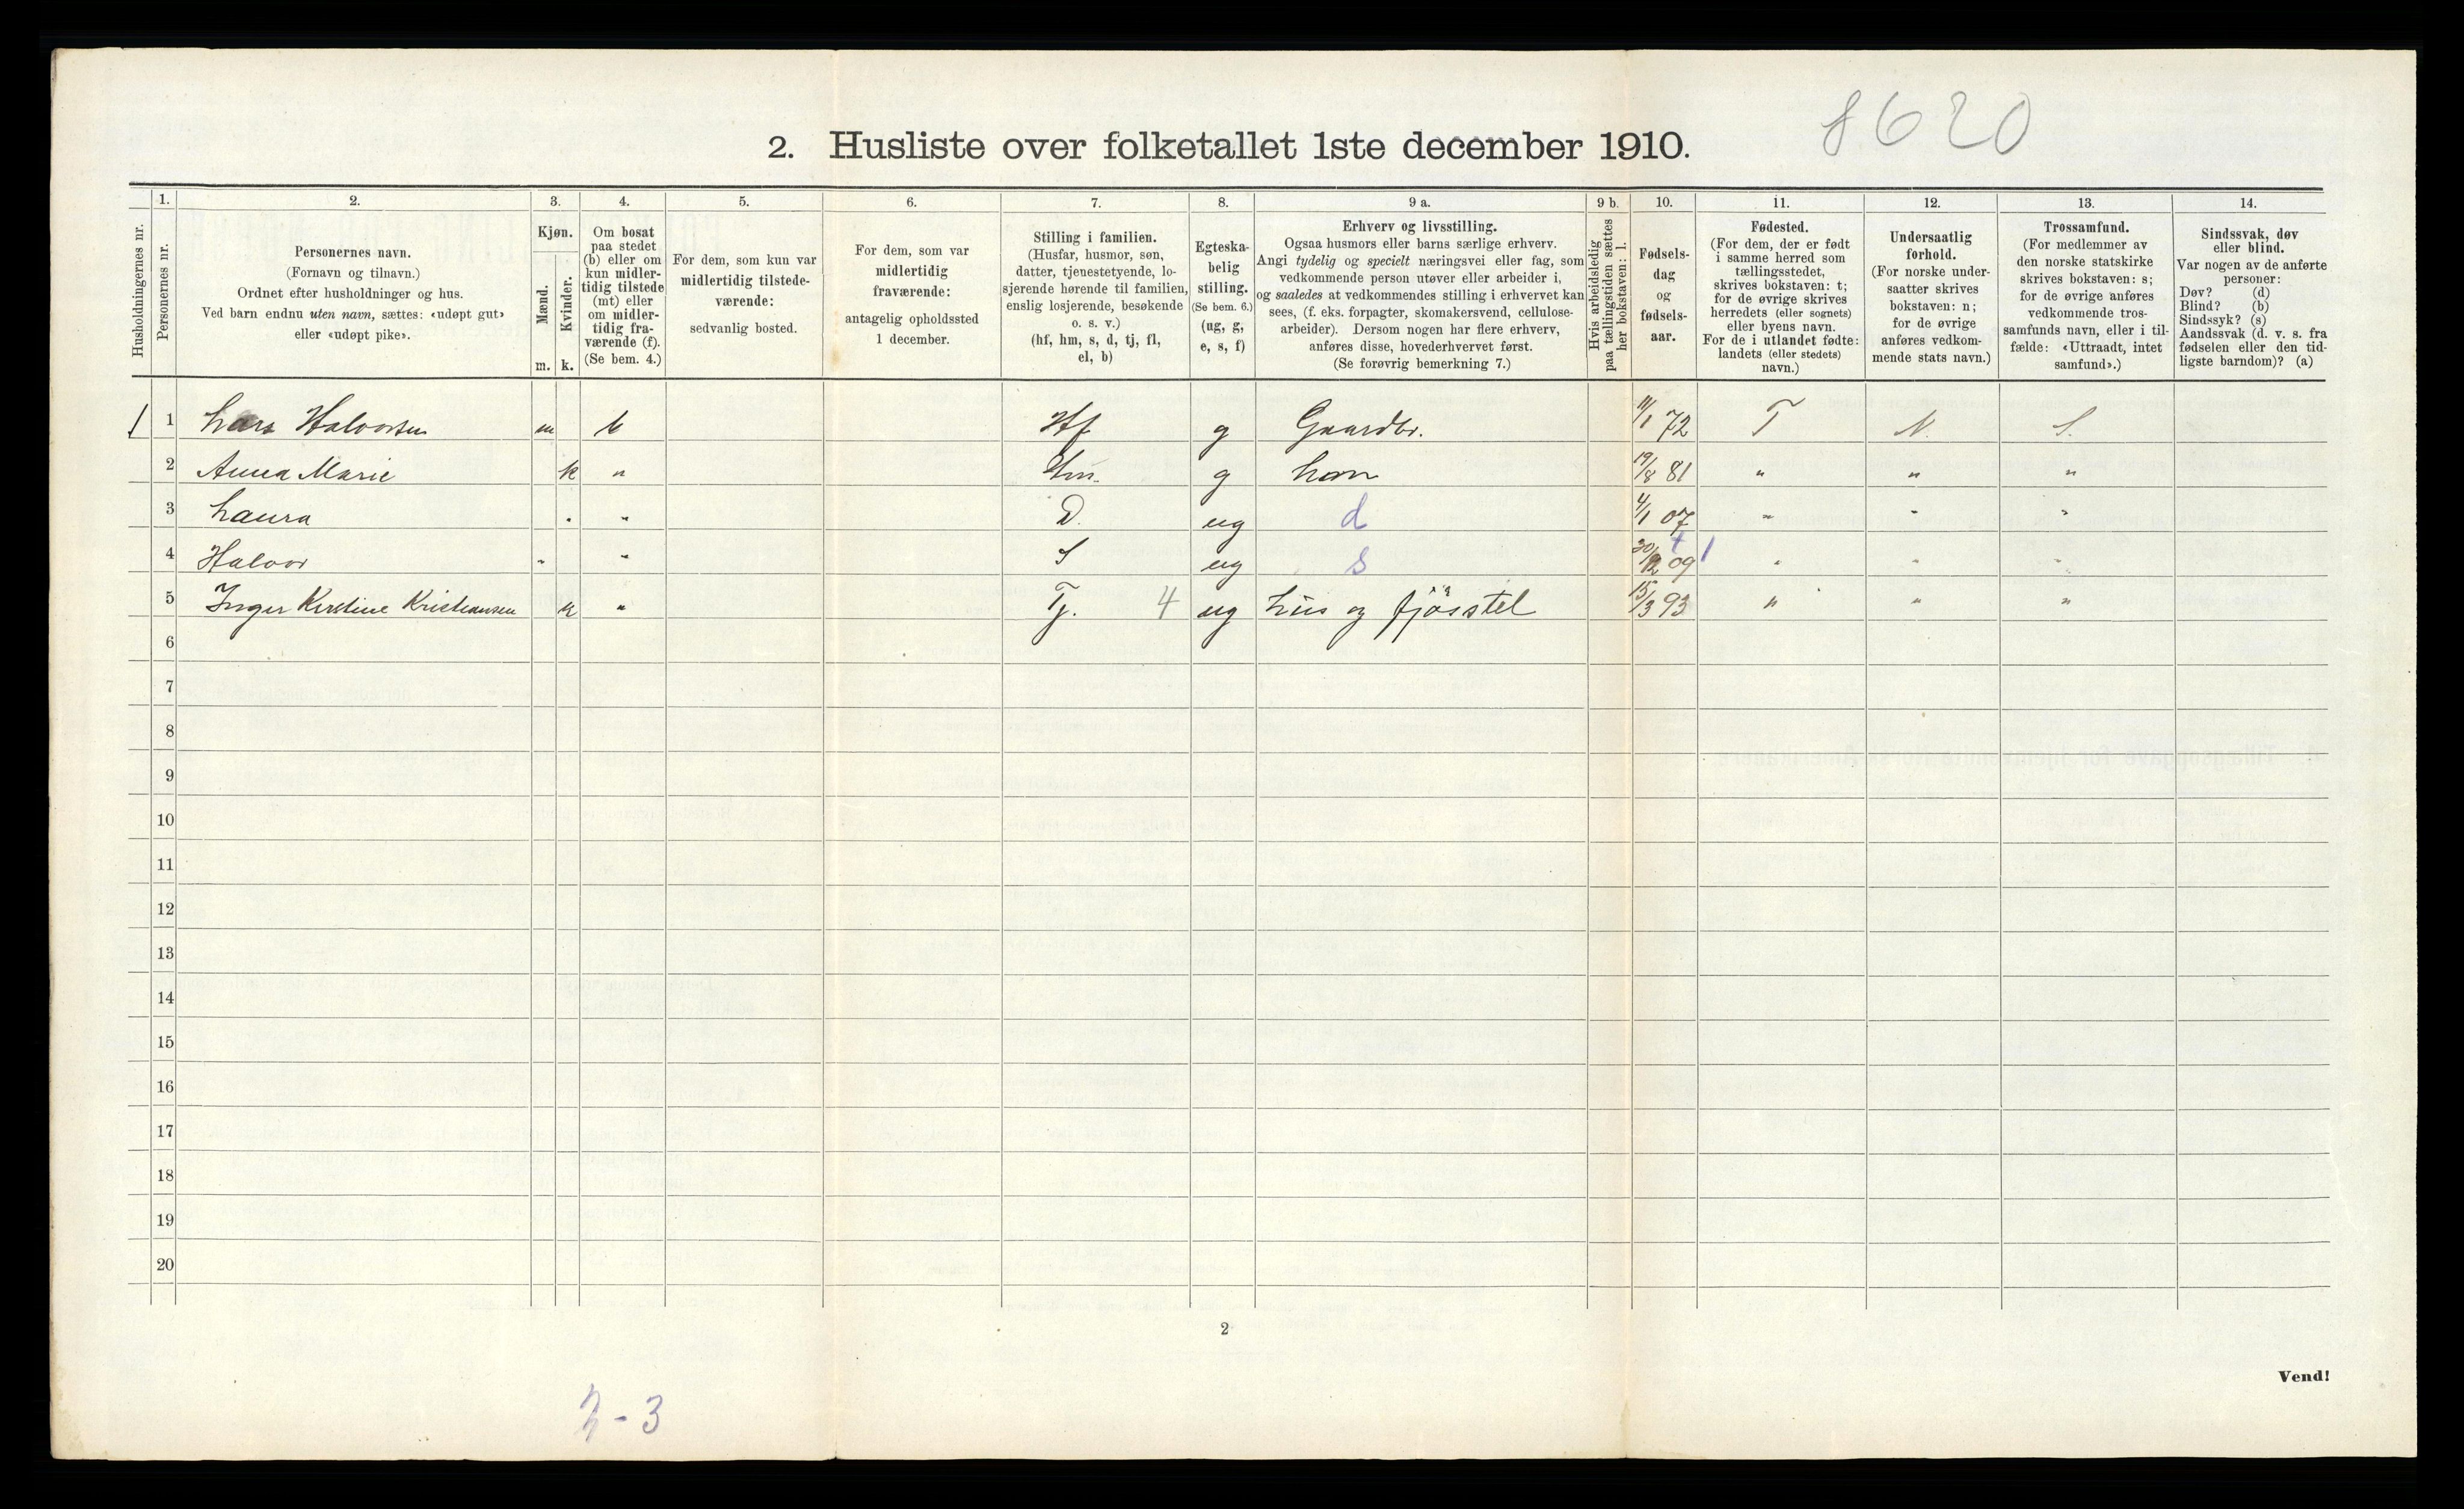 8620
2. Husliste over folketallet 1ste december 1910.
Husholdningernes nr.
1.
Personernes nr.
2.
Personernes navn.
(Fornavn og tilnavn.)
Ordnet efter husholdninger og hus.
Ved barn endnu uten navn, sættes: «udøpt gut»
eller «udøpt pike».
3.
Kjøn.
Mænd.
Kvinder.
m. k.
4.
Om bosat
paa stedet
(b) eller om
kun midler-
tidig tilstede
(mt) eller
om midler-
tidig fra-
værende (f).
(Se bem. 4.)
5.
For dem, som kun var
midlertidig tilstede-
værende:
sedvanlig bosted.
6.
For dem, som var
midlertidig
fraværende:
antagelig opholdssted
1 december.
7.
Stilling i familien.
(Husfar, husmor, søn,
datter, tjenestetyende, lo-
sjerende hørende til familien,
enslig losjerende, besøkende
o. s. v.)
(hf, hm, s, d, tj, fl,
el, b)
8.
Egteska-
belig
stilling.
(Se bem. 6.)
(ug, g,
e, s, f)
9 a.
Erhverv og livsstilling.
Ogsaa husmors eller barns særlige erhverv.
Angi tydelig og specielt næringsvei eller fag, som
vedkommende person utøver eller arbeider i,
og saaledes at vedkommendes stilling i erhvervet kan
sees, (f. eks. forpagter, skomakersvend, cellulose-
arbeider). Dersom nogen har flere erhverv,
anføres disse, hovederhvervet først.
(Se forøvrig bemerkning 7.)
9 b.
Hvis arbeidsledig
paa tællingstiden sættes
her bokstaven: l.
10.
Fødsels-
dag
og
fødsels-
aar.
11.
Fødested.
(For dem, der er født
i samme herred som
tællingsstedet,
skrives bokstaven: t;
for de øvrige skrives
herredets (eller sognets)
eller byens navn.
For de i utlandet fødte:
landets (eller stedets)
navn.)
12.
Undersaatlig
forhold.
(For norske under-
saatter skrives
bokstaven: n;
for de øvrige
anføres vedkom-
mende stats navn.)
13.
Trossamfund.
(For medlemmer av
den norske statskirke
skrives bokstaven: s;
for de øvrige anføres
vedkommende tros-
samfunds navn, eller i til-
fælde: «Uttraadt, intet
samfund».)
14.
Sindssvak, døv
eller blind.
Var nogen av de anførte
personer:
Døv? (d)
Blind? (b)
Sindssyk? (s)
Aandssvak (d. v. s. fra
fødselen eller den tid-
ligste barndom)? (a)
1 1 Lars Halvorsen m b Hf g Gaardbr. 11/1 72 T N. S.
2 Anna Marie k " Hm. g hm 19/8 81 " " "
3 Laura " " D. ug d 4/1 07 " " "
4 Halvor " " S ug s 30/12 09 1 " " "
5 Inger Kirstine Kristiansen k " Tj. 4 ug hus og fjösstel 15/3 93 " " "
6
7
8
9
10
11
12
13
14
15
16
17
18
19
20
2
Vend!
2-3